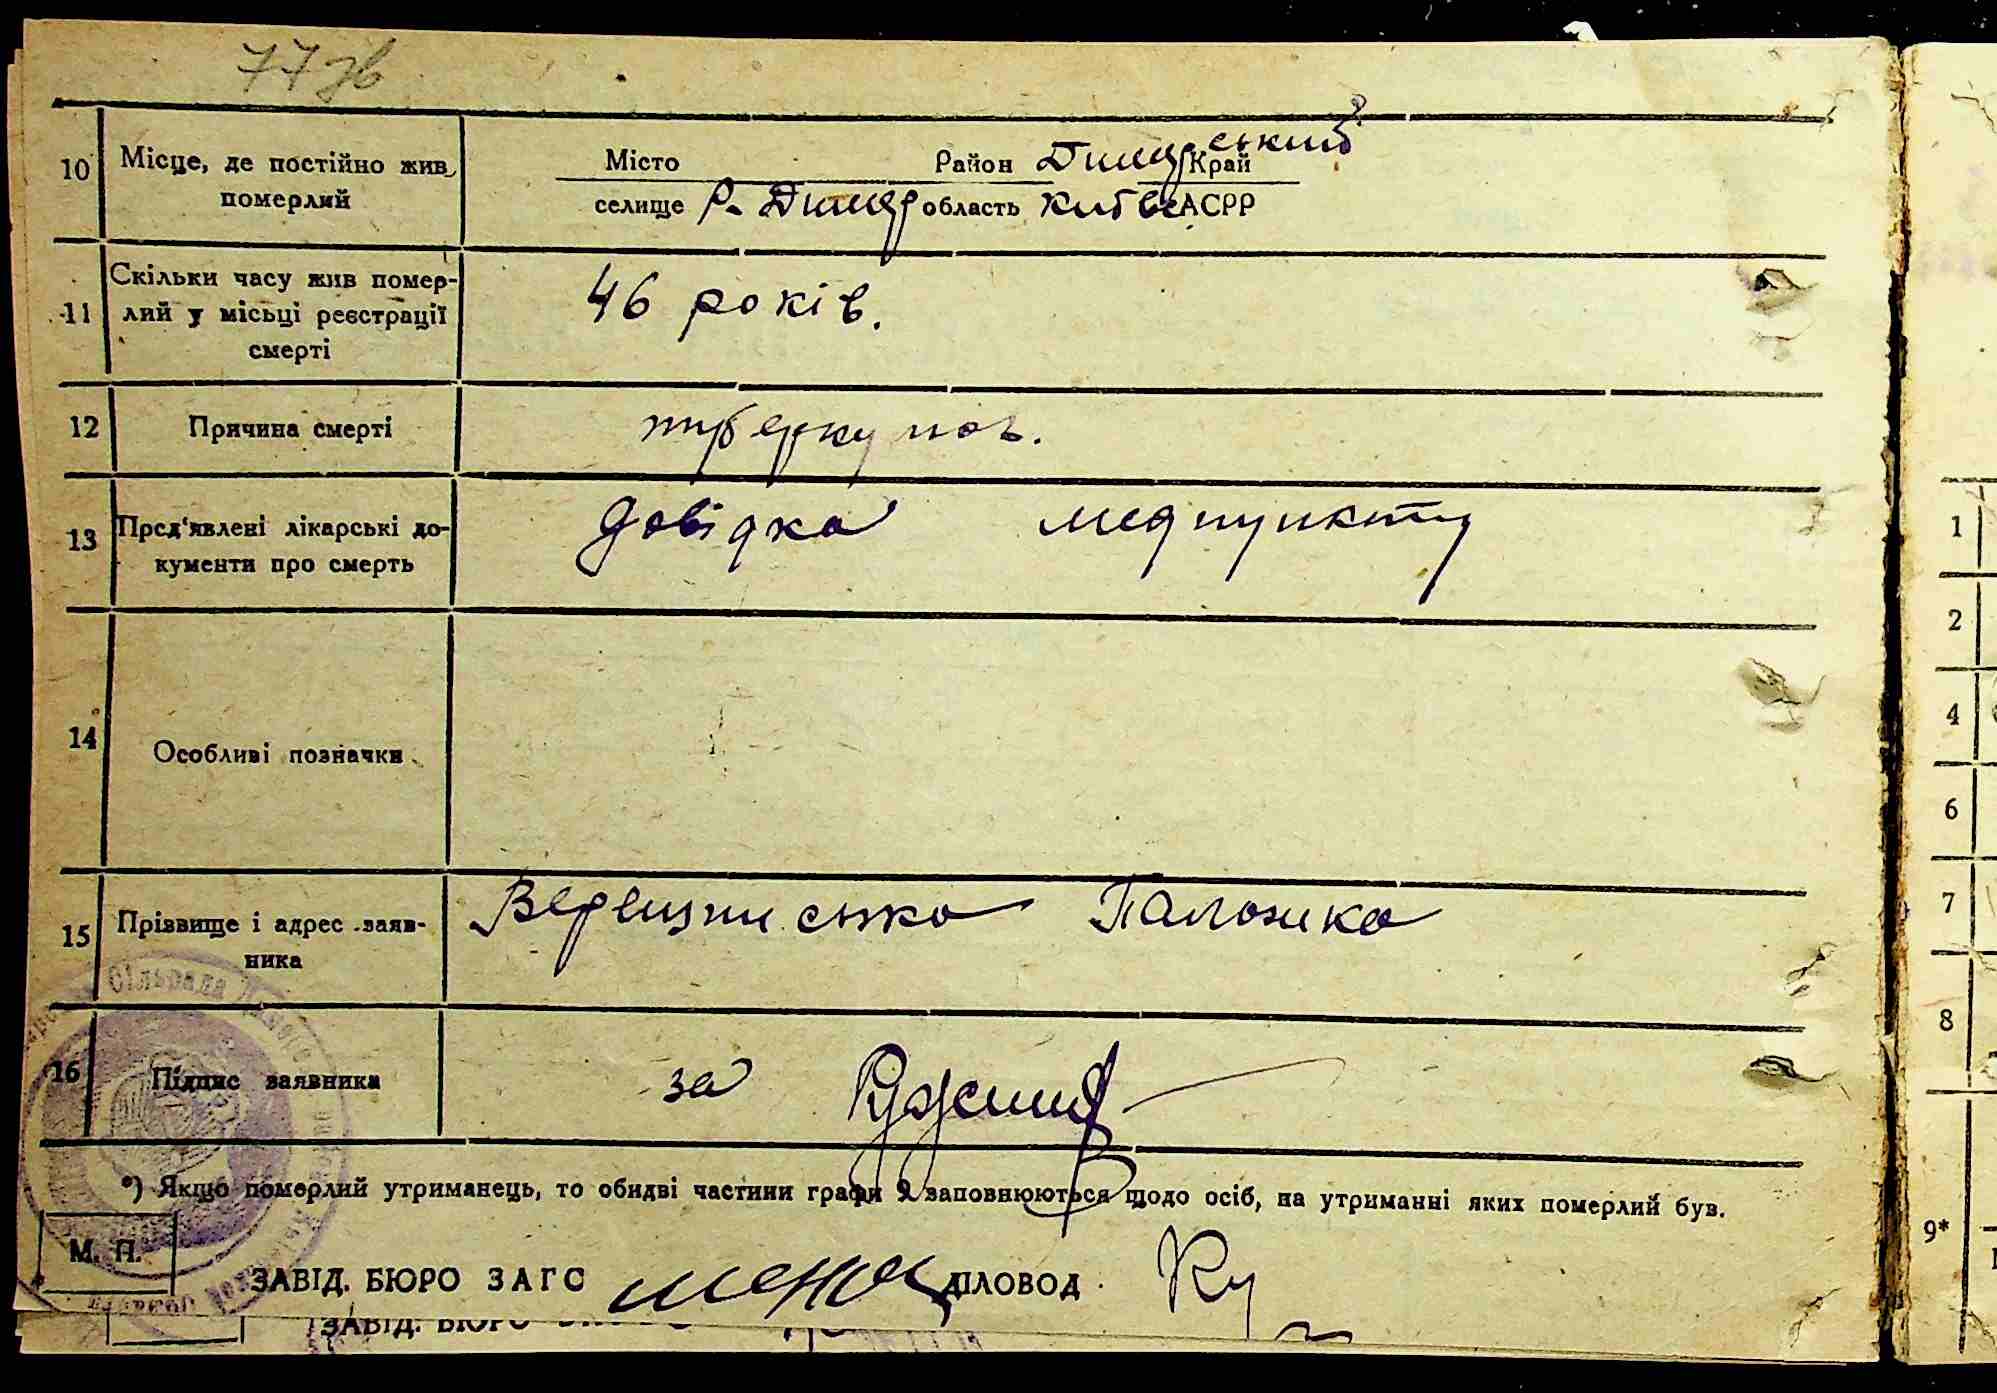 77 зв
10 Місце, де постійно жив померлий Місто Район Димерський Край
селище Р. Димер область Київс АСРР
11 Скільки часу жив помер-
лий у місьці реєстрації
смерті
46 років.
12 Причина смерті туберкульоз.
13 Пред'явлені лікарські до-
кументи про смерть
довідка медпункту
14 Особливі позначки
15 Прізвище і адрес заяв-
ника
Палажка
16 Підпис заявника за
*) Якщо померлий утриманець, то обидві частини графи 9 заповнюються щодо осіб, на утриманні яких померлий був.
М. П.
ЗАВІД. БЮРО ЗАГС ДІЛОВОД
ЗАВІД. БЮРО
сільрада
1
2
4
6
7
8
9*